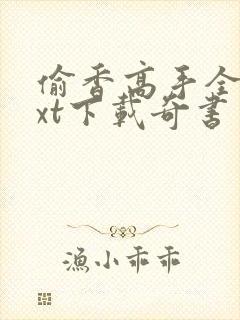 偷香高手全
xt下載奇書
漁小乖乖